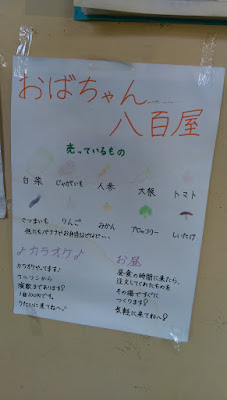 おばちゃん……
八百屋
売っているもの
白菜 じゃがいも 人参 大根 トマト
さつまいも りんご みかん ブロッコリー しいたけ
他にもバナナやお弁当などなど…
♪カラオケ♪
カラオケやってます!
演歌もあります!
1曲100円です。
うたいに来てね〜♪
お昼
昼食の時間に来たら、
注文してくれたものを
その場ですぐに
つくります!
気軽に来てね〜!